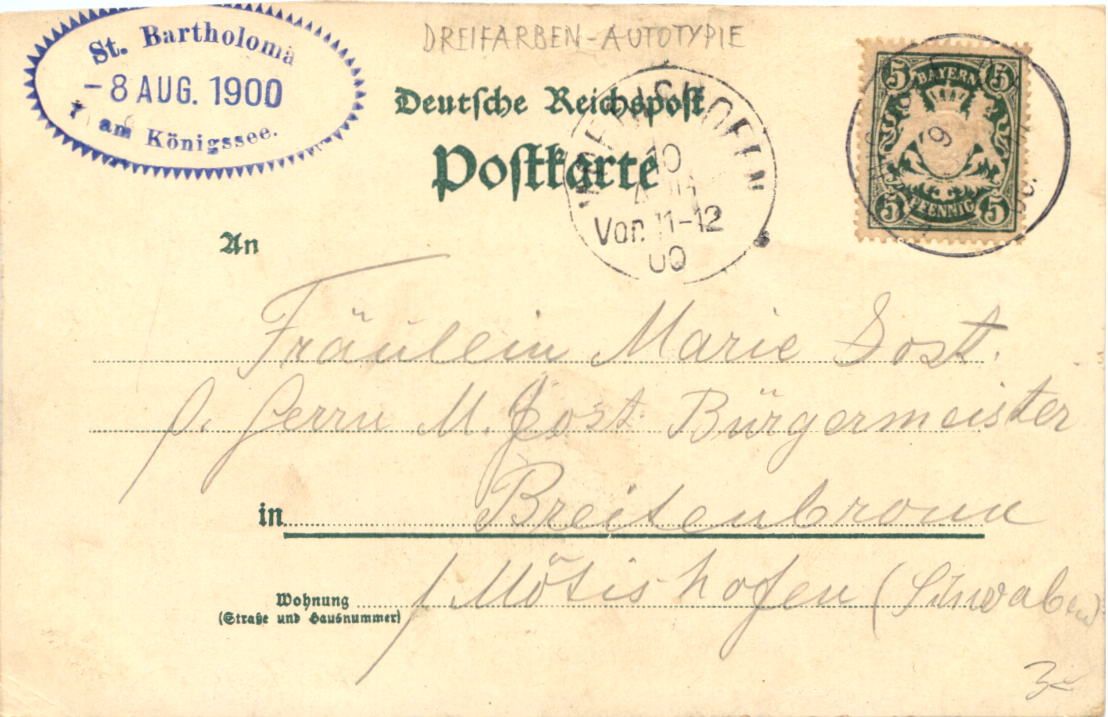 DREIFARBEN-AUTOTYPIE
St. Bartholomä
-8 AUG. 1900
am Königssee.
Deutsche Reichspost
Postkarte
10
Vor. 11-12
00
5 BAYERN 5
9
5 PFENNIG 5
An
Fräulein Marie Jost.
p. Herrn M. Jost. Bürgermeister
in Breitenbronn
Wohnung
(Straße und Hausnummer)
/ Mötishofen (Schwaben)